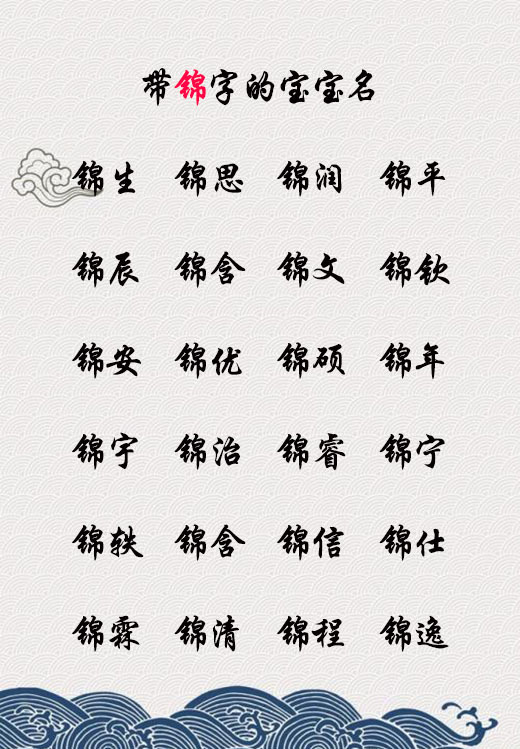 带锦字的宝宝名
锦生 锦思 锦润 锦平
锦辰 锦含 锦文 锦钦
锦安 锦优 锦硕 锦年
锦宇 锦治 锦睿 锦宁
锦轶 锦含 锦信 锦仕
锦霖 锦清 锦程 锦逸